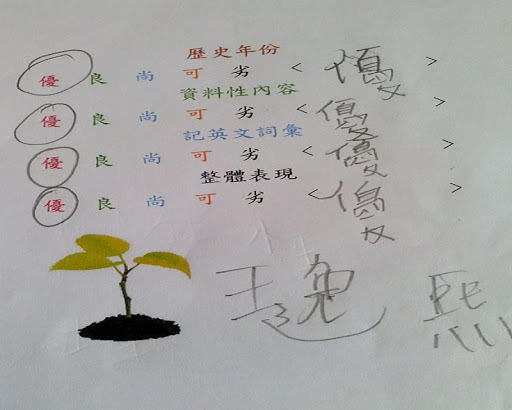 歷史年份
優 良 尚 可 劣 < 優 >
資料性內容
優 良 尚 可 劣 < 優 >
記英文詞彙
優 良 尚 可 劣 < 優 >
整體表現
優 良 尚 可 劣 < 優 >
王逸熙